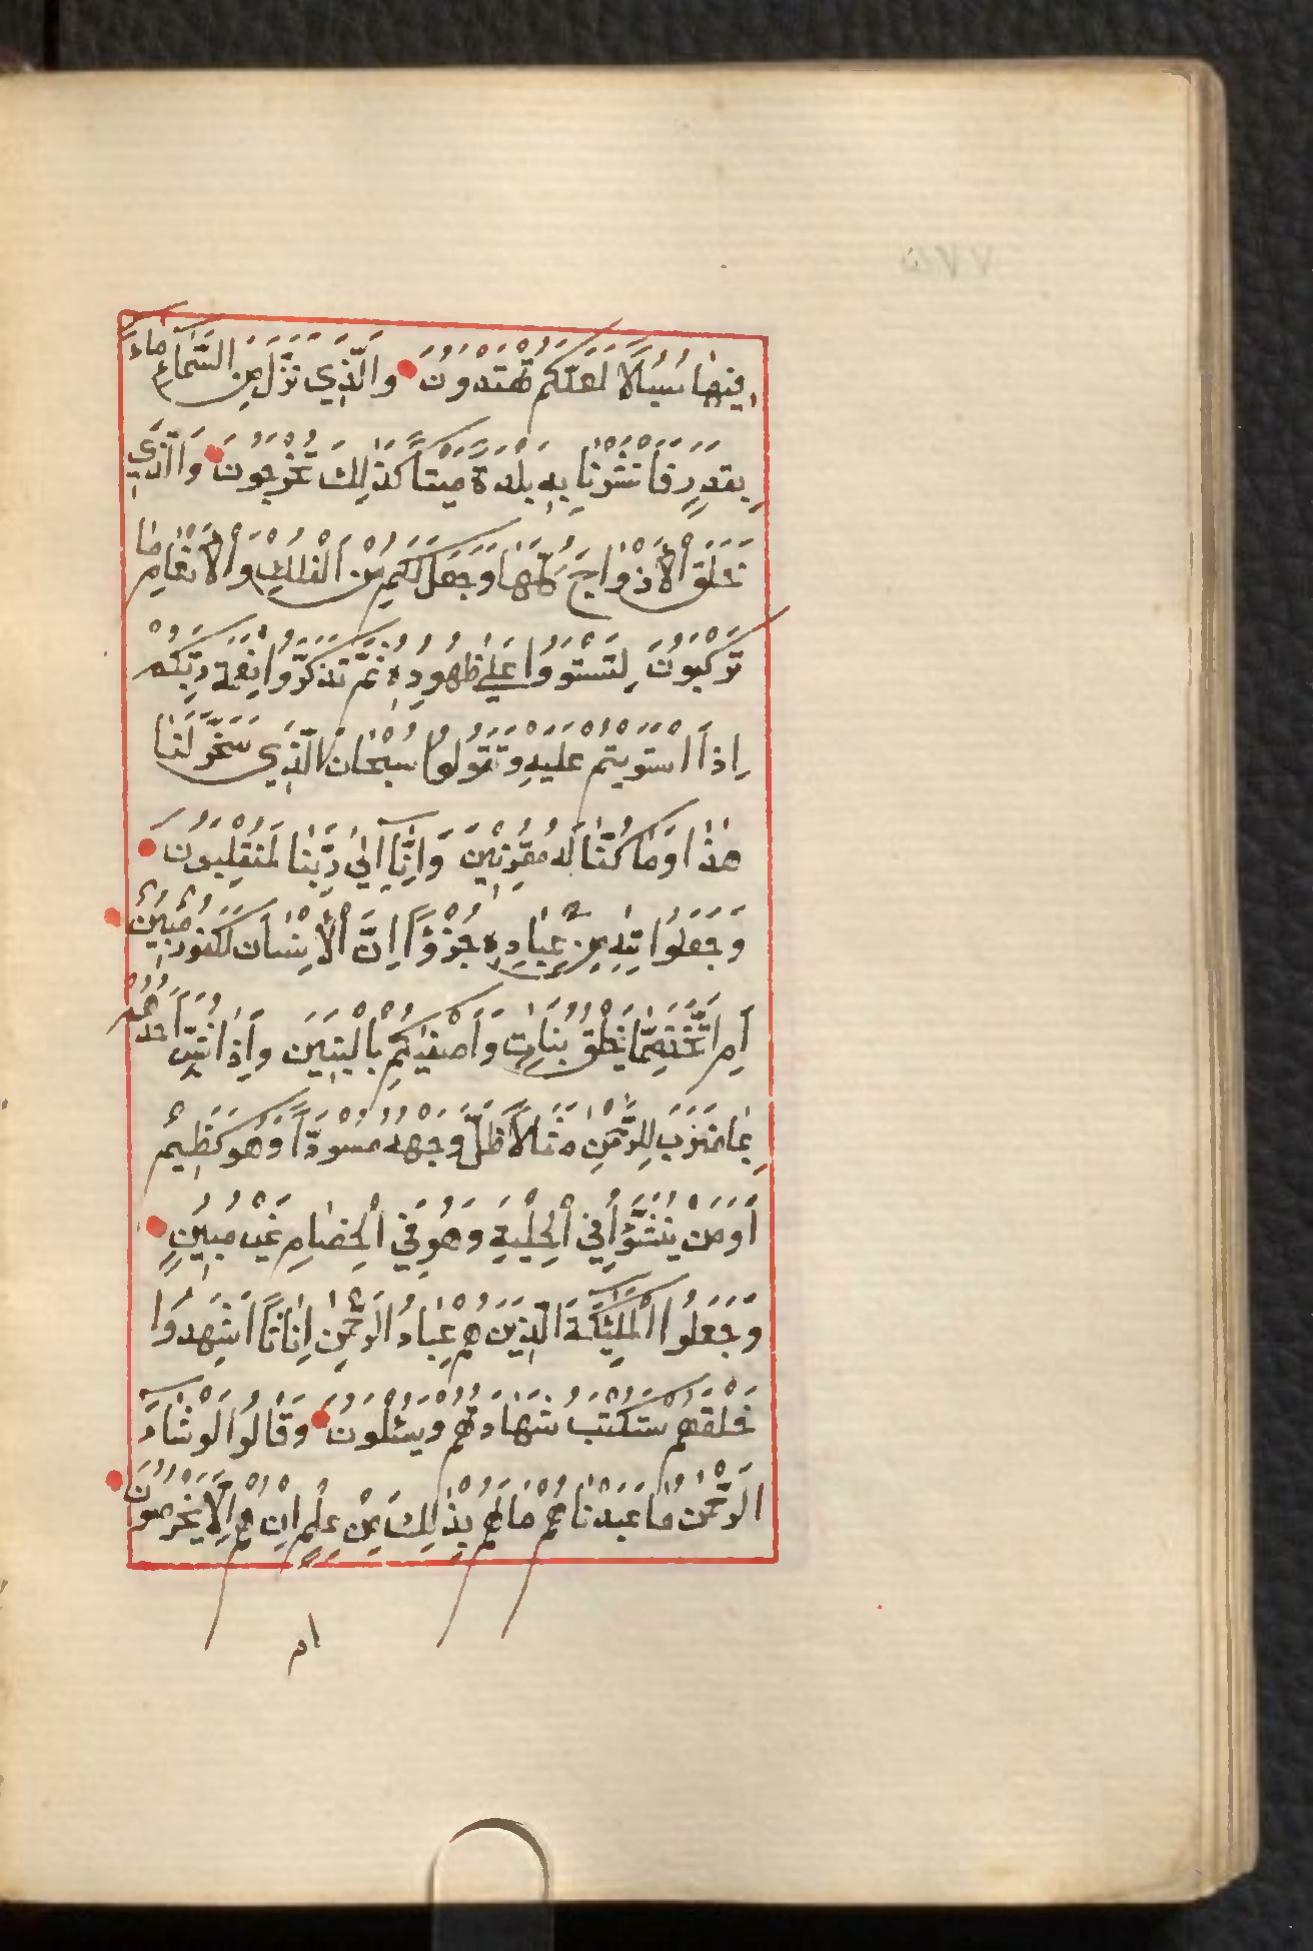 فِيهَا سُبُلًا لَعَلَّكُمْ تَهْتَدُونَ وَالَّذِي نَزَّلَ مِنَ السَّمَاءِ مَاءً
بِقَدَرٍ فَأَنْشَرْنَا بِهِ بَلْدَةً مَيْتًا كَذٰلِكَ تُخْرَجُونَ وَالَّذِي
خَلَقَ الْأَزْوَاجَ كُلَّهَا وَجَعَلَ لَكُمْ مِنَ الْفُلْكِ وَالْأَنْعَامِ مَا
تَرْكَبُونَ لِتَسْتَوُوا عَلَى ظُهُورِهِ ثُمَّ تَذْكُرُوا نِعْمَةَ رَبِّكُمْ
إِذَا اسْتَوَيْتُمْ عَلَيْهِ وَتَقُولُوا سُبْحَانَ الَّذِي سَخَّرَ لَنَا
هٰذَا وَمَا كُنَّا لَهُ مُقْرِنِينَ وَإِنَّا إِلَى رَبِّنَا لَمُنْقَلِبُونَ
وَجَعَلُوا لَهُ مِنْ عِبَادِهِ جُزْؤًا إِنَّ الْإِنْسَانَ لَكَفُورٌ مُبِينٌ
أَمِ اتَّخَذَ مِمَّا يَخْلُقُ بَنَاتٍ وَأَصْفَيٰكُمْ بِالْبَنِينَ وَإِذَا بُشِّرَ أَحَدُهُمْ
بِمَا ضَرَبَ لِلرَّحْمٰنِ مَثَلًا ظَلَّ وَجْهُهُ مُسْوَدًّا وَهُوَ كَظِيمٌ
أَوَمَنْ يُنَشَّؤُا فِي الْحِلْيَةِ وَهُوَ فِي الْخِصَامِ غَيْرُ مُبِينٍ
وَجَعَلُوا الْمَلٰئِكَةَ الَّذِينَ هُمْ عِبَادُ الرَّحْمٰنِ إِنَاثًا أَشَهِدُوا
خَلْقَهُمْ سَتُكْتَبُ شَهَادَتُهُمْ وَيُسْئَلُونَ وَقَالُوا لَوْ شَاءَ
الرَّحْمٰنُ مَا عَبَدْنَاهُمْ مَا لَهُمْ بِذٰلِكَ مِنْ عِلْمٍ إِنْ هُمْ إِلَّا يَخْرُصُونَ
ام